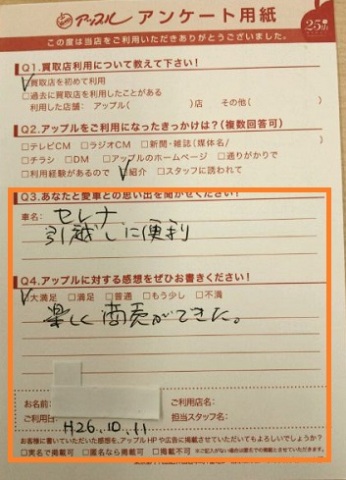 アップル アンケート用紙
25th
この度は当店をご利用いただきありがとうございました。
Q1.買取店利用について教えて下さい!
□買取店を初めて利用
□過去に買取店を利用したことがある
利用した店舗: アップル( )店 その他( )
Q2.アップルをご利用になったきっかけは?(複数回答可)
□テレビCM □ラジオCM □新聞・雑誌(媒体名/
□チラシ □DM □アップルのホームページ □通りがかりで
□利用経験があるので □紹介 □スタッフに誘われて
Q3.あなたと愛車との思い出を聞かせください!
車名: セレナ
引越しに便利
Q4.アップルに対する感想をぜひお書きください!
□大満足 □満足 □普通 □もう少し □不満
楽しく商売ができた。
お名前: ご利用店名:
ご利用日: H26.10.11 担当スタッフ名:
お客様に書いていただいた感想を、アップルHPや広告に掲載させていただいてもよろしいでしょうか?
□実名で掲載可 □匿名なら掲載可 □掲載不可 ※ご記入がない場合は匿名での掲載とさせていただきます。